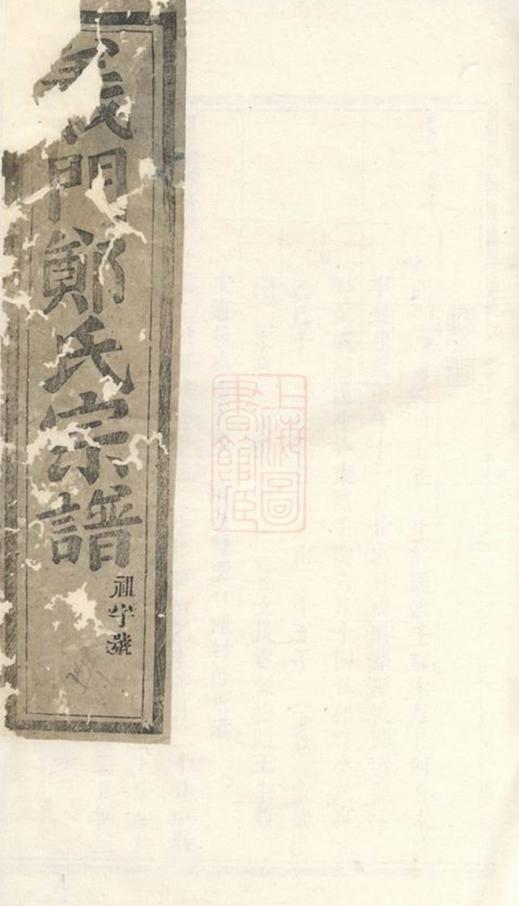 義門鄭氏宗譜
祖字號
上海圖書館藏